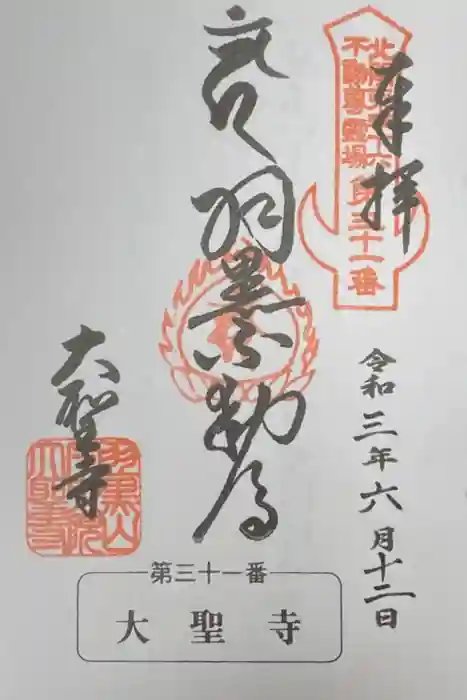 奉拝
北関東三十六
不動尊霊場
第三十一番
令和三年六月十二日
羽黒不動尊
大聖寺
羽黒山
大聖寺
第三十一番
大聖寺